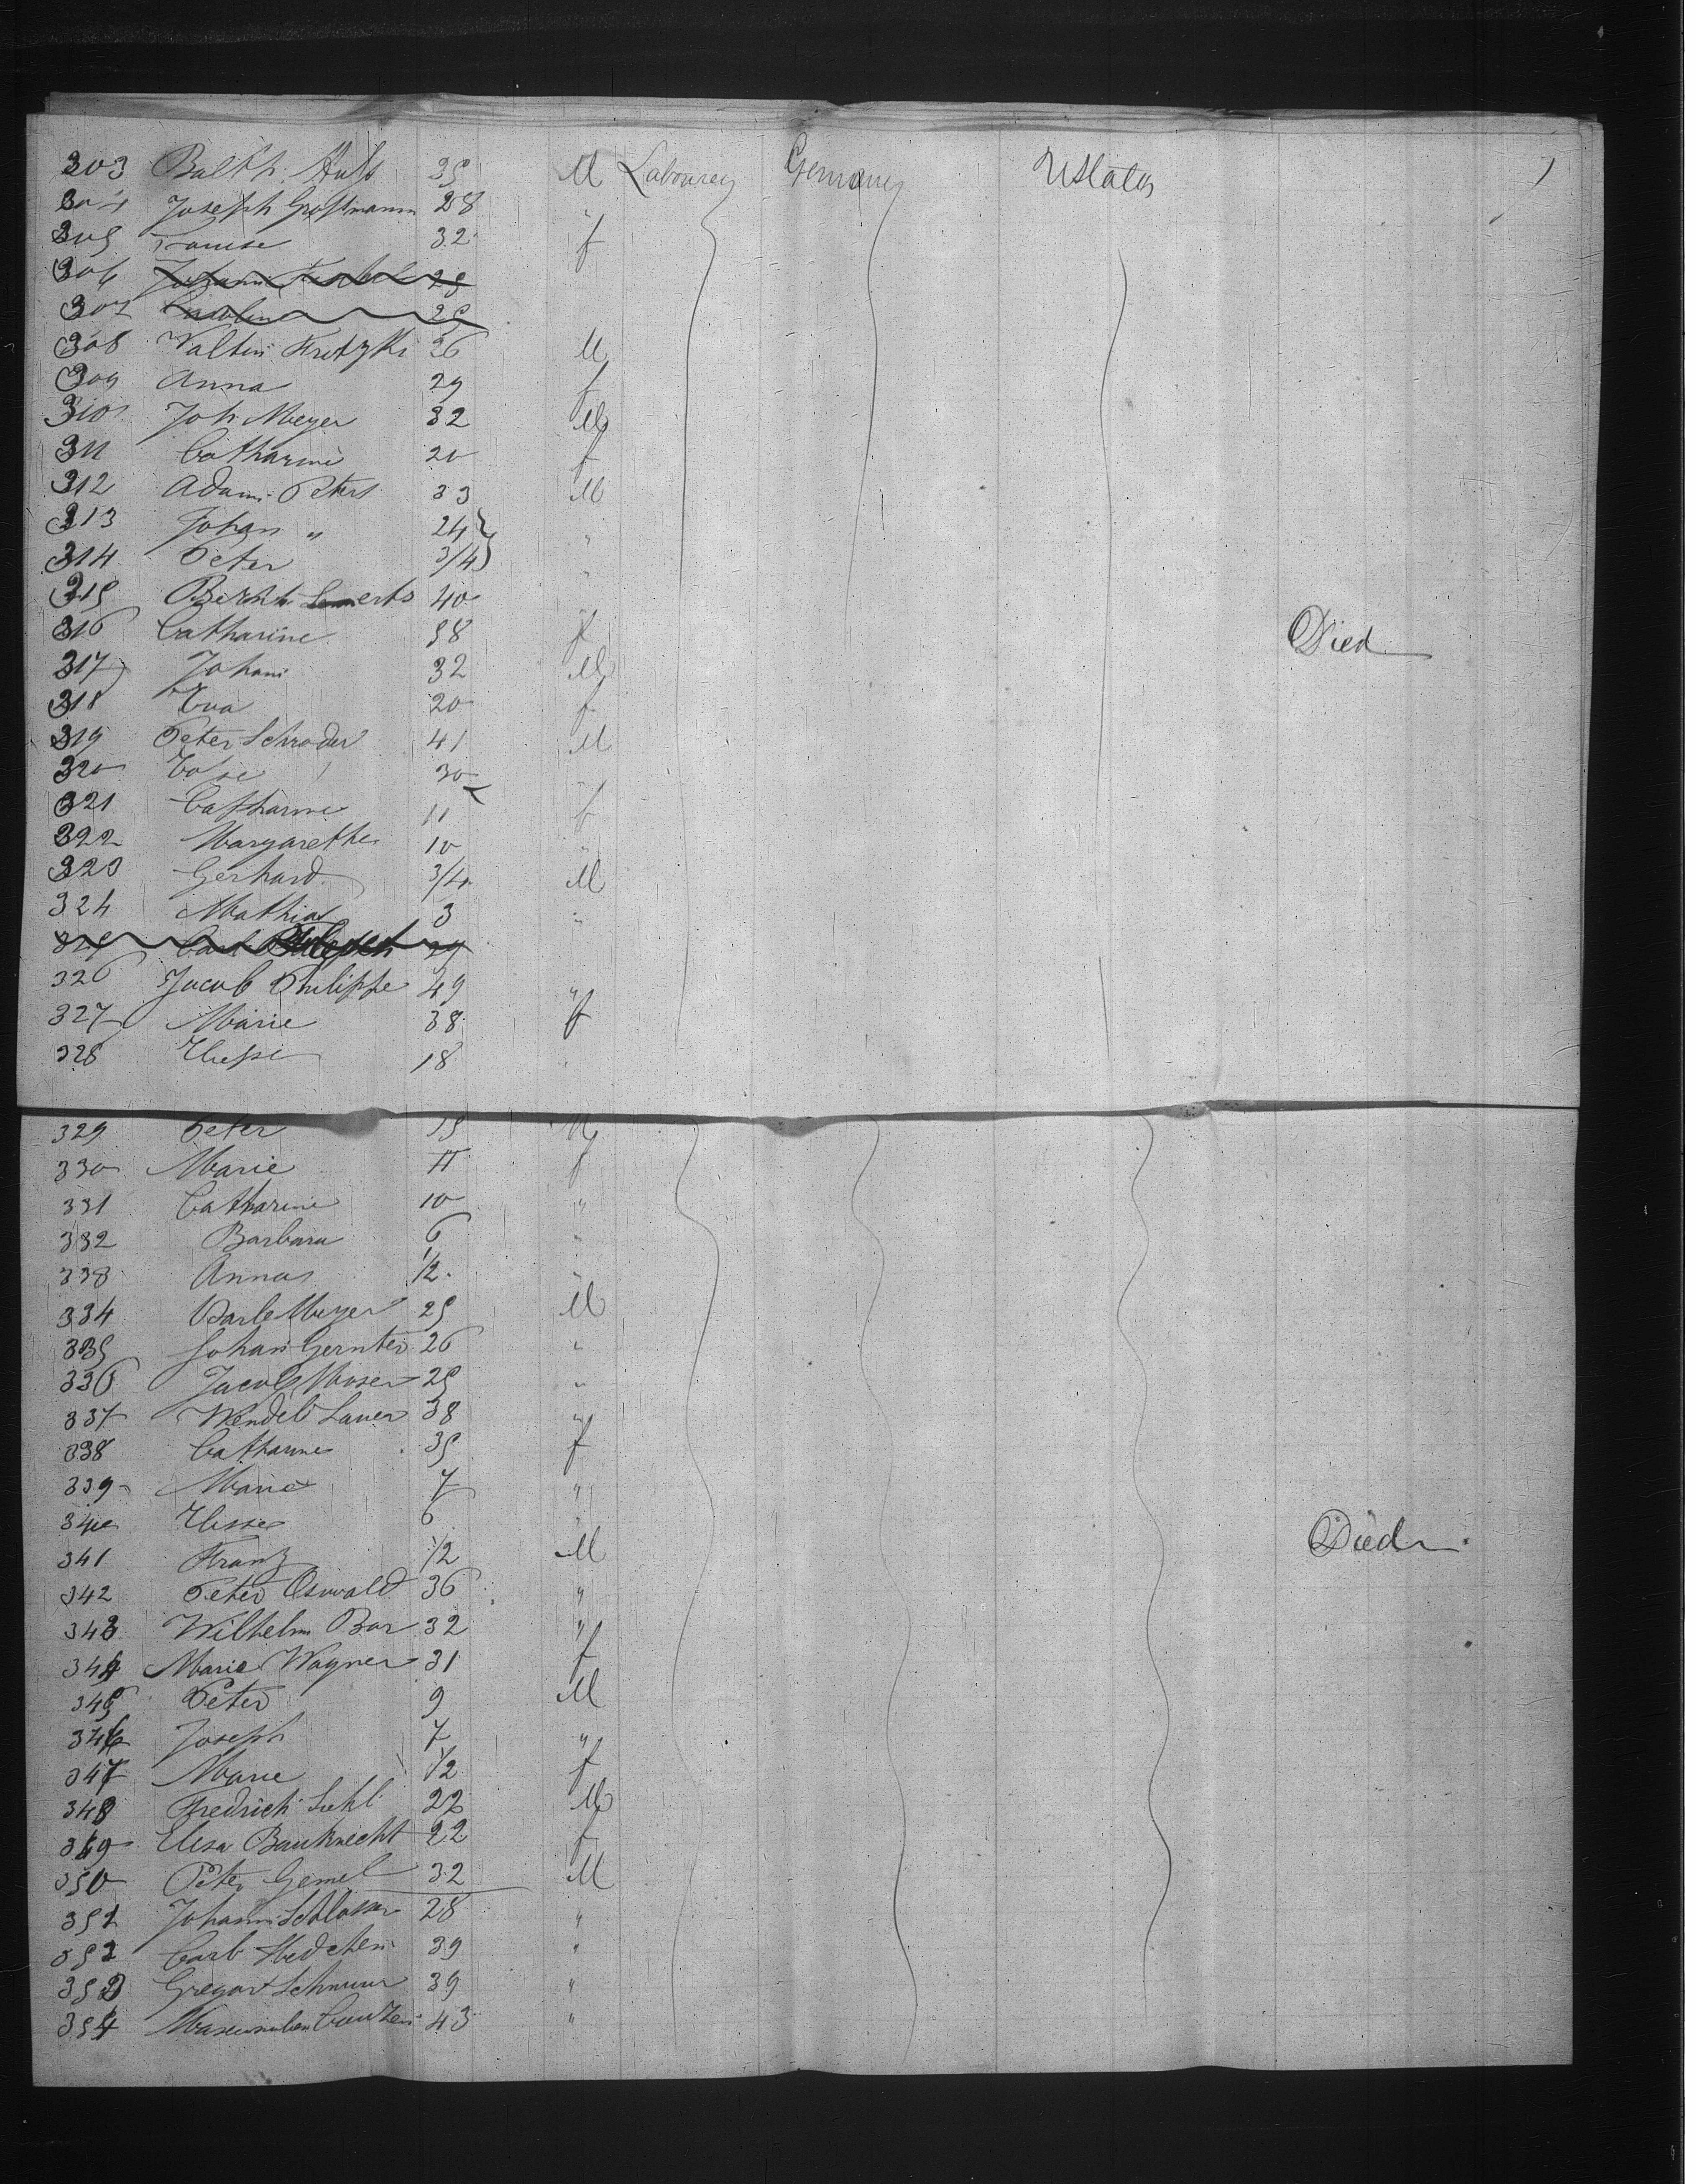 303 Balth. Huls 35 M Labourer Germany UStates
304 Joseph Grossmann 28 "
305 Louise 32 f
306 Johann 25
307 Caroline 25
308 Valtin Kretzki 26 M
309 Anna 29 f
310 Joh Meyer 32 M
311 Catharine 20 f
312 Adam Peters 33 M
313 Johan " 24 "
314 Peter 3/4 "
315 40
316 Catharine 58 f Died
317 Johann 32 M
318 Eva 20 f
319 Peter Schroder 41 M
320 30 "
321 Catharine 11 f
322 Margarethe 10 "
323 Gerhard 3/4 M
324 Mathias 3 "
325 Carl 29
326 Jacob Philippe 49 "
327 Marie 38 f
328 18 "
329 Peter 15 M
330 Marie 11 f
331 Catharine 10 "
332 Barbara 6 "
333 Anna 1/2 "
334 Carl Meyer 25 M
335 Johan Gernter 26 "
336 Jacob Moser 25 "
337 Wendel Lauer 38 "
338 Catharine 35 f
339 Marie 7 "
340 6 "
341 Franz 1/2 M Died
342 Peter Oswald 36 "
343 Wilhelm Bar 32 "
344 Marie Wagner 31 f
345 Peter 9 M
346 Joseph 7 "
347 Marie 1/2 f
348 Fredrich 22 M
349 Elisa Bauknecht 22 f
350 Peter Gemel 32 M
351 Johann Schlosser 28 "
352 Carl 39 "
353 Gregor Schnuur 39 "
354 43 "